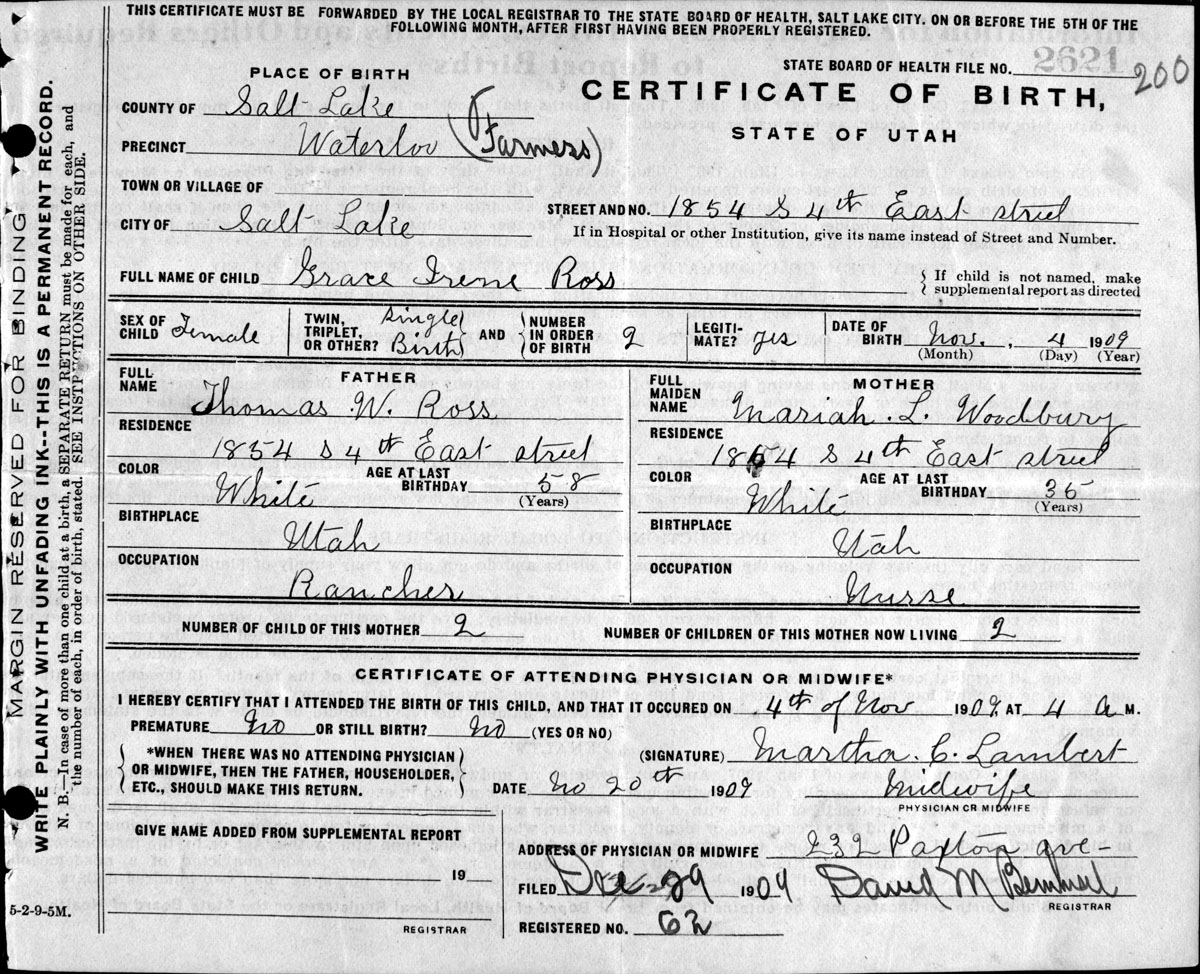 THIS CERTIFICATE MUST BE FORWARDED BY THE LOCAL REGISTRAR TO THE STATE BOARD OF HEALTH, SALT LAKE CITY. ON OR BEFORE THE 5TH OF THE
FOLLOWING MONTH, AFTER FIRST HAVING BEEN PROPERLY REGISTERED.
STATE BOARD OF HEALTH FILE NO. 2621 200
PLACE OF BIRTH
CERTIFICATE OF BIRTH,
STATE OF UTAH
COUNTY OF Salt Lake
PRECINCT Waterloo (Farmers)
TOWN OR VILLAGE OF
STREET AND NO. 1854 S 4th East street
CITY OF Salt Lake
If in Hospital or other Institution, give its name instead of Street and Number.
FULL NAME OF CHILD Grace Irene Ross
If child is not named, make
supplemental report as directed
SEX OF CHILD Female
TWIN, TRIPLET, OR OTHER? Single Birth
AND NUMBER IN ORDER OF BIRTH 2
LEGITI-MATE? yes
DATE OF BIRTH Nov. 4 1909
(Month) (Day) (Year)
FATHER
FULL NAME Thomas W. Ross
RESIDENCE
1854 S 4th East street
COLOR White
AGE AT LAST BIRTHDAY 58
(Years)
BIRTHPLACE
Utah
OCCUPATION
Rancher
MOTHER
FULL MAIDEN NAME Mariah L. Woodbury
RESIDENCE
1854 S 4th East street
COLOR White
AGE AT LAST BIRTHDAY 35
(Years)
BIRTHPLACE
Utah
OCCUPATION
Nurse
NUMBER OF CHILD OF THIS MOTHER 2
NUMBER OF CHILDREN OF THIS MOTHER NOW LIVING 2
CERTIFICATE OF ATTENDING PHYSICIAN OR MIDWIFE*
I HEREBY CERTIFY THAT I ATTENDED THE BIRTH OF THIS CHILD, AND THAT IT OCCURED ON 4th of Nov 1909 AT 4 A M.
PREMATURE No OR STILL BIRTH? No (YES OR NO)
*WHEN THERE WAS NO ATTENDING PHYSICIAN
OR MIDWIFE, THEN THE FATHER, HOUSEHOLDER,
ETC., SHOULD MAKE THIS RETURN.
(SIGNATURE) Martha C. Lambert
DATE No 20th 1909
Midwife
PHYSICIAN OR MIDWIFE
GIVE NAME ADDED FROM SUPPLEMENTAL REPORT
19
REGISTRAR
ADDRESS OF PHYSICIAN OR MIDWIFE 232 Paxton ave
FILED Dec 29 1909 David M
REGISTRAR
REGISTERED NO. 62
5-2-9-5M.
MARGIN RESERVED FOR BINDING
WRITE PLAINLY WITH UNFADING INK--THIS IS A PERMANENT RECORD.
N. B.—In case of more than one child at a birth, a SEPARATE RETURN must be made for each, and
the number of each, in order of birth, stated. SEE INSTRUCTIONS ON OTHER SIDE.